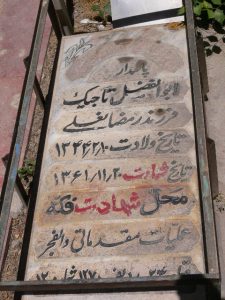 پاسدار
ابوالفضل تاجیک
فرزند رمضانعلی
تاریخ ولادت ۱۳۴۴٫۲٫۱۰
تاریخ شهادت ۱۳۶۱٫۱۱٫۲۰
محل شهادت فکه
عملیات مقدماتی والفجر